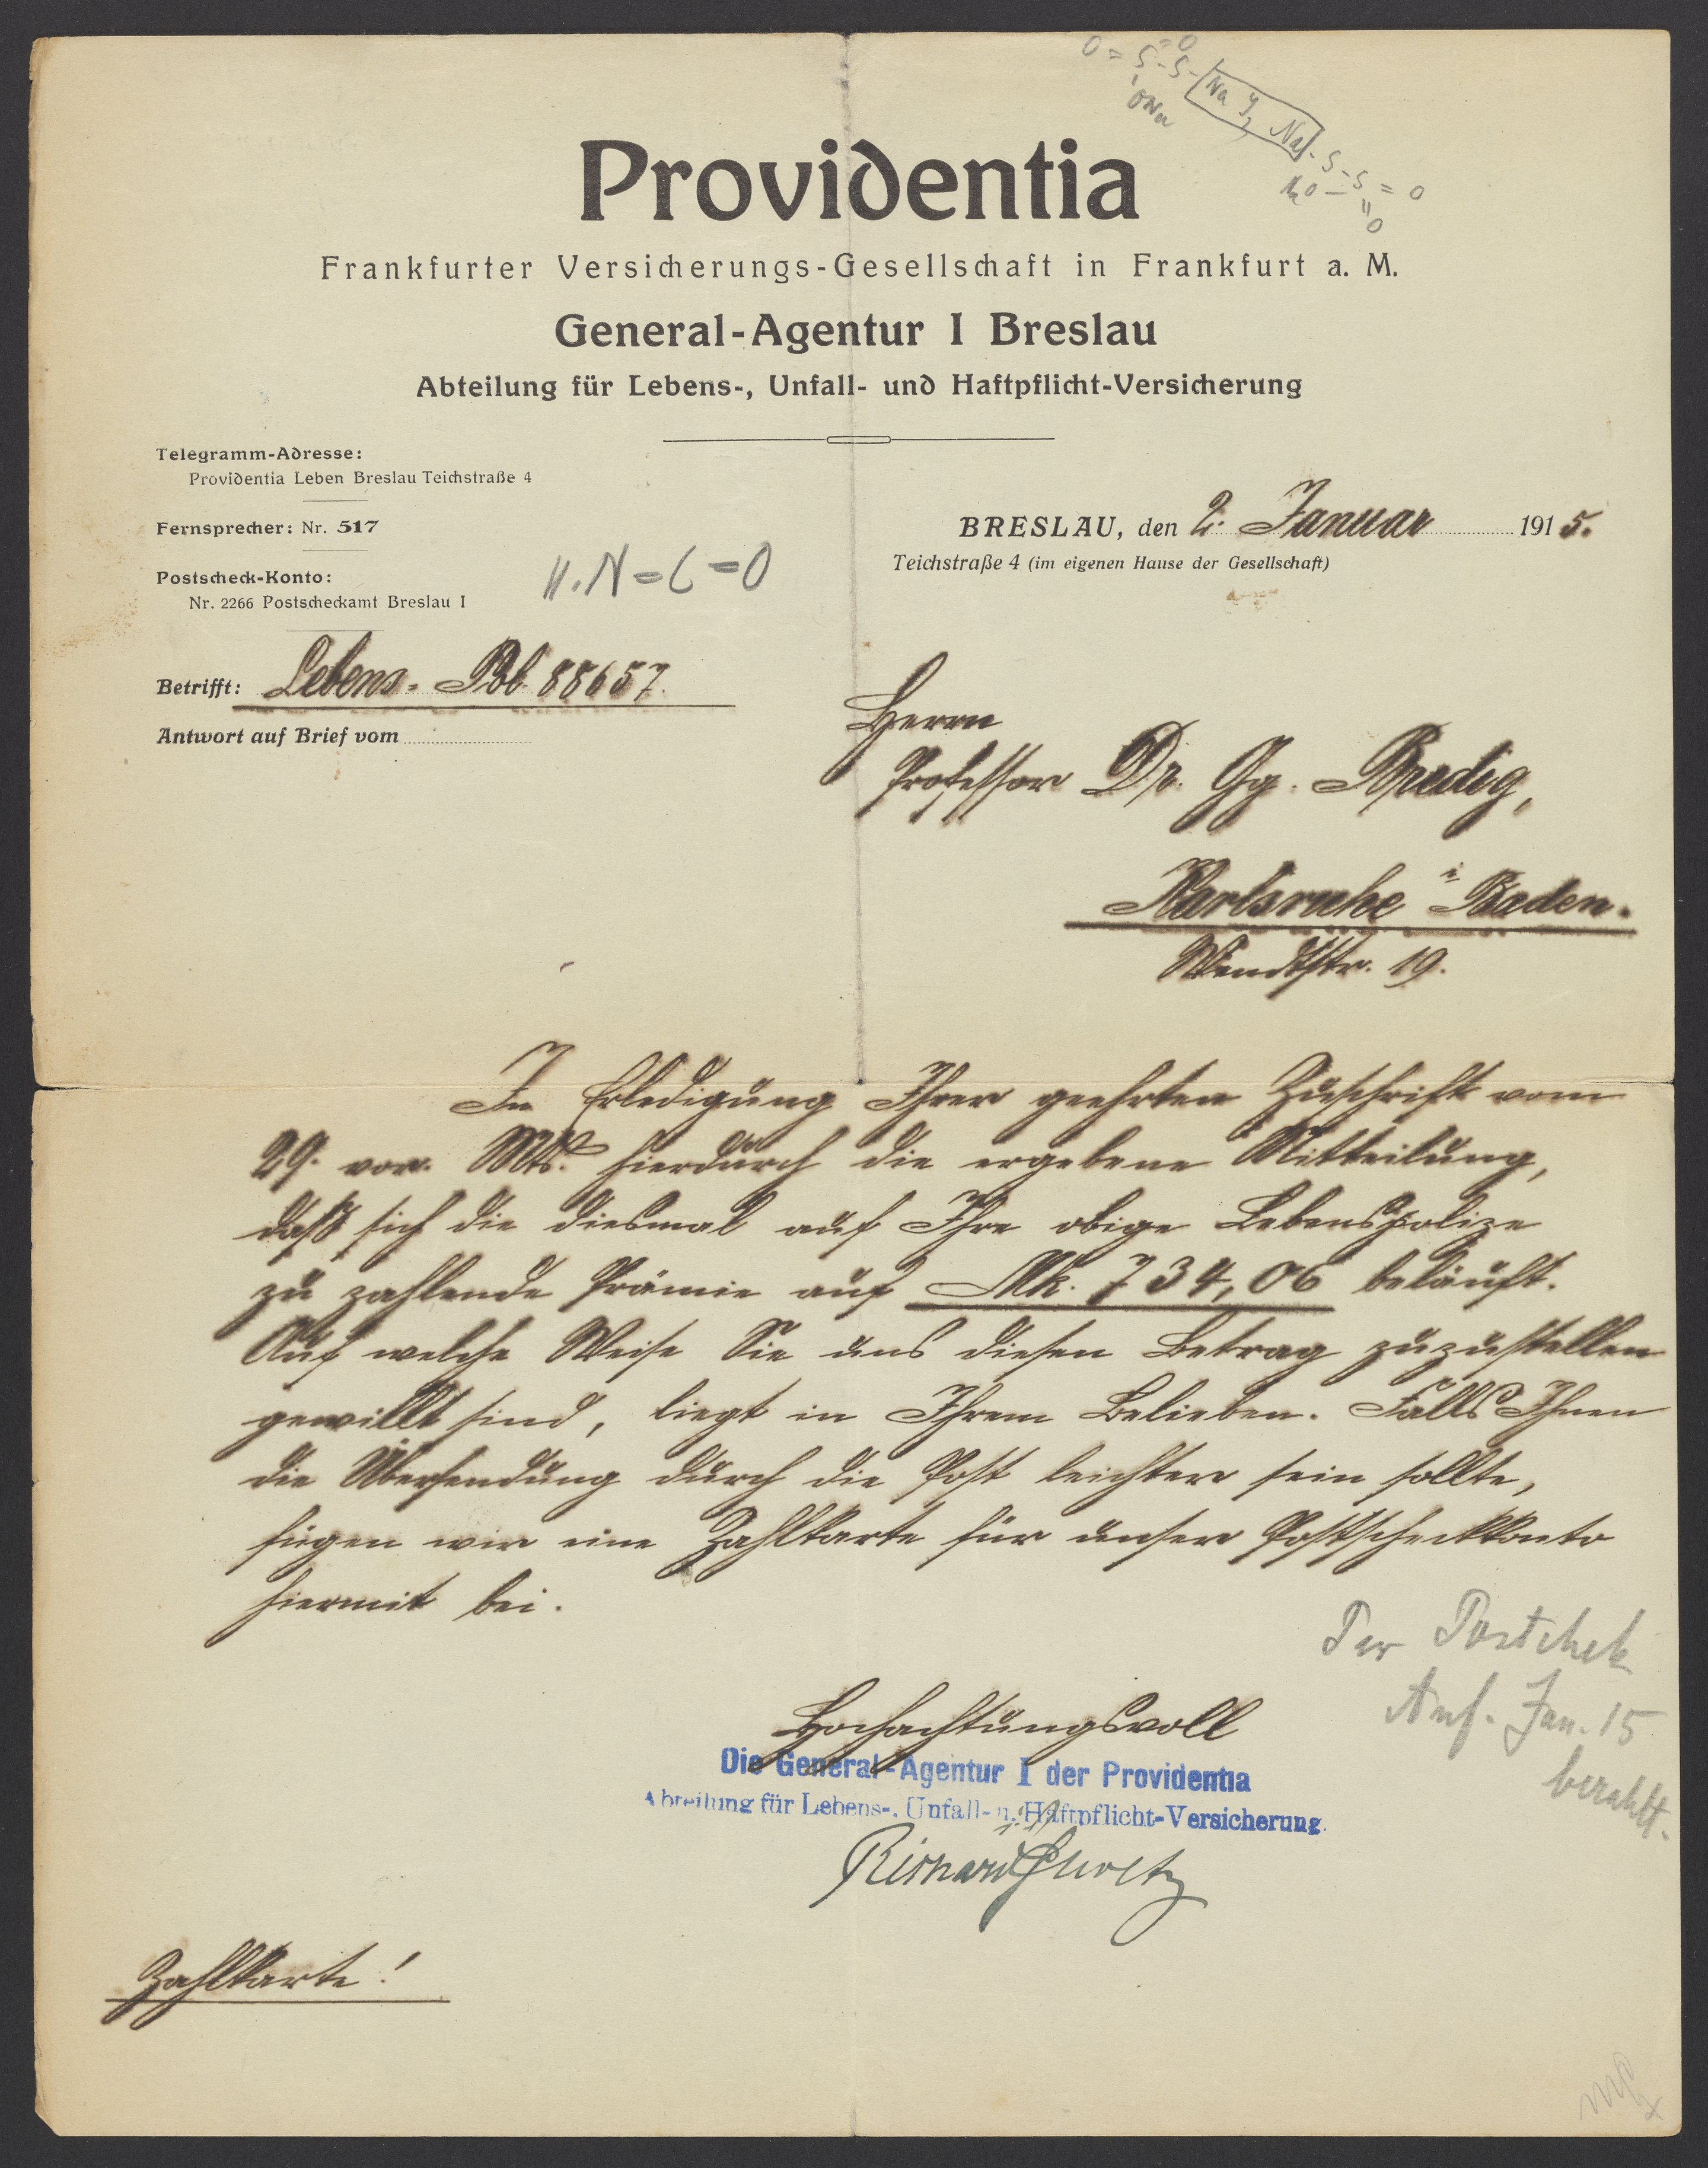 O = S - S -
= O
ONa
Na J₂ Na
- S - S = O
NaO -
O
Providentia
Frankfurter Versicherungs-Gesellschaft in Frankfurt a. M.
General-Agentur I Breslau
Abteilung für Lebens-, Unfall- und Haftpflicht-Versicherung
Telegramm-Adresse:
Providentia Leben Breslau Teichstraße 4
Fernsprecher: Nr. 517
Postscheck-Konto:
Nr. 2266 Postscheckamt Breslau I
H.N=C=O
BRESLAU, den 2. Januar 1915.
Teichstraße 4 (im eigenen Hause der Gesellschaft)
Betrifft: Lebens-Pol. 88657.
Antwort auf Brief vom
Herrn
Professor Dr. Gg. Bredig,
Karlsruhe i Baden.
Wendtstr. 19.
In Erledigung Ihrer geehrten Zuschrift vom
29. vor. Mts. hierdurch die ergebene Mitteilung,
daß sich die diesmal auf Ihre obige Lebenspolize
zu zahlende Prämie auf Mk. 734,06 beläuft.
Auf welche Weise Sie uns diesen Betrag zuzustellen
gewillt sind, liegt in Ihrem Belieben. Falls Ihnen
die Übersendung durch die Post leichter sein sollte,
fügen wir eine Zahlkarte für unser Postscheckkonto
hiermit bei.
Per Postchek
Anf. Jan. 15
bezahlt.
Hochachtungsvoll
Die General-Agentur I der Providentia
Abteilung für Lebens-, Unfall- u. Haftpflicht-Versicherung.
Richard
Zahlkarte!